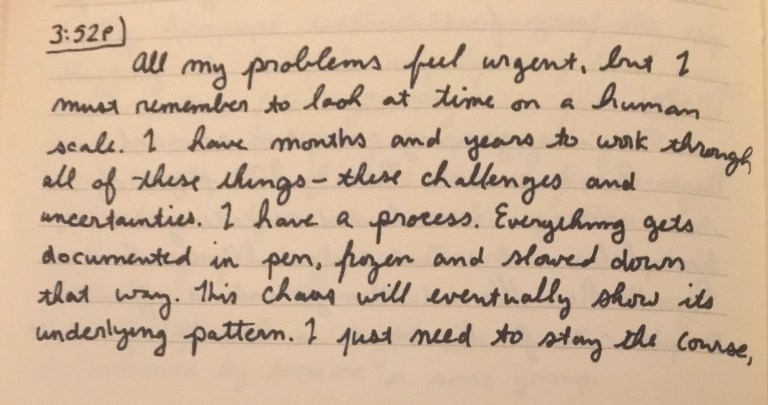 3:52p
All my problems feel urgent, but I
must remember to look at time on a human
scale. I have months and years to work through
all of these things – these challenges and
uncertainties. I have a process. Everything gets
documented in pen, frozen and slowed down
that way. This chaos will eventually show its
underlying pattern. I just need to stay the course,